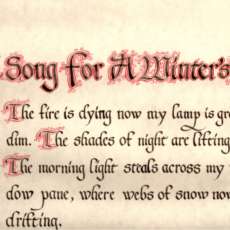 Song for A Winter's
The fire is dying now my lamp is gro
dim. The shades of night are lifting
The morning light steals across my
dow pane, where webs of snow now
drifting.